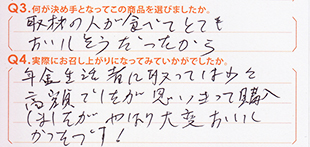 Q3.何が決め手となってこの商品を選びましたか。
取材の人が食べてとても
おいしそうだったから
Q4.実際にお召し上がりになってみていかがでしたか。
年金生活者に取っては少々
高額でしたが思いきって購入
しましたがやはり大変おいし
かったです!